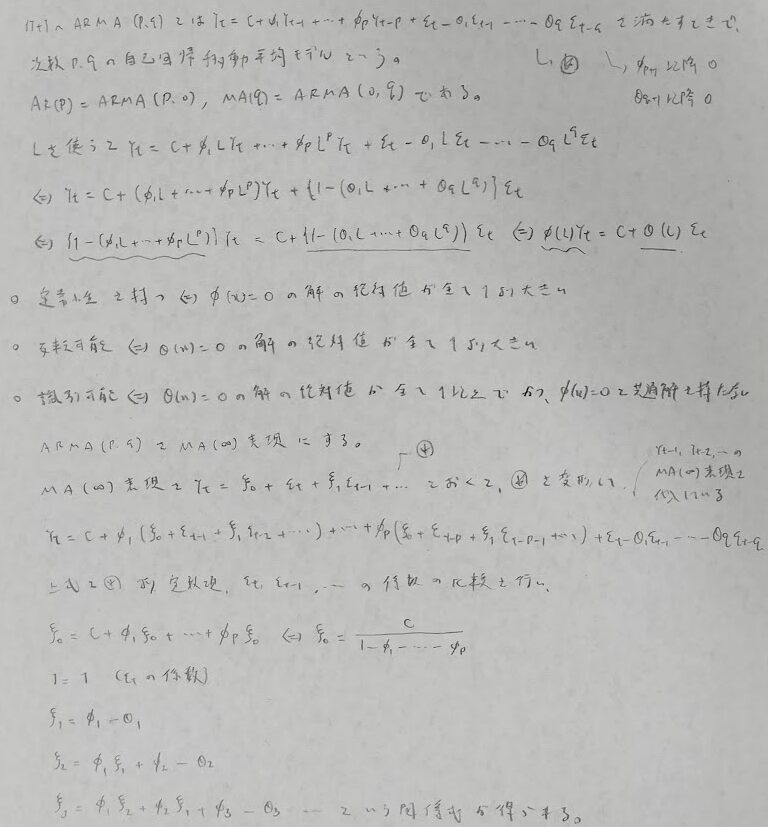 {Yt} ~ ARMA(P.q) とは Yt = C + φ1 Yt-1 + … + φp Yt-p + εt - θ1 εt-1 - … - θq εt-q を満たすときで、
次数 P.q の自己回帰移動平均モデルという。
↳ ㊍ ↳ φp+1 以降 0
θq+1 以降 0
AR(P) = ARMA(P.0), MA(q) = ARMA(0,q) である。
Lを使うと Yt = C + φ1 L Yt + … + φp L^p Yt + εt - θ1 L εt - … - θq L^q εt
⇔ Yt = C + (φ1 L + … + φp L^p) Yt + {1 - (θ1 L + … + θq L^q)} εt
⇔ {1 - (φ1 L + … + φp L^p)} Yt = C + {1 - (θ1 L + … + θq L^q)} εt ⇔ φ(L) Yt = C + θ(L) εt
○ 定常性を持つ ⇔ φ(x)=0 の解の絶対値が全て1より大きい
○ 反転可能 ⇔ θ(x)=0 の解の絶対値が全て1より大きい
○ 識別可能 ⇔ θ(x)=0 の解の絶対値が全て1以上でかつ、φ(x)=0と共通解を持たない
ARMA(P.q)をMA(∞)表現にする。
MA(∞)表現を Yt = ξ0 + εt + ξ1 εt-1 + … とおくと, を変形して,
Yt-1, Yt-2, … の
MA(∞)表現を
代入している
Yt = C + φ1 (ξ0 + εt-1 + ξ1 εt-2 + …) + … + φp (ξ0 + εt-p + ξ1 εt-p-1 + …) + εt - θ1 εt-1 - … - θq εt-q
上式と より 定数項, εt, εt-1, … の係数の比較を行い,
ξ0 = C + φ1 ξ0 + … + φp ξ0 ⇔ ξ0 = C / (1 - φ1 - … - φp)
1 = 1 (εtの係数)
ξ1 = φ1 - θ1
ξ2 = φ1 ξ1 + φ2 - θ2
ξ3 = φ1 ξ2 + φ2 ξ1 + φ3 - θ3 … という関係式が得られる。